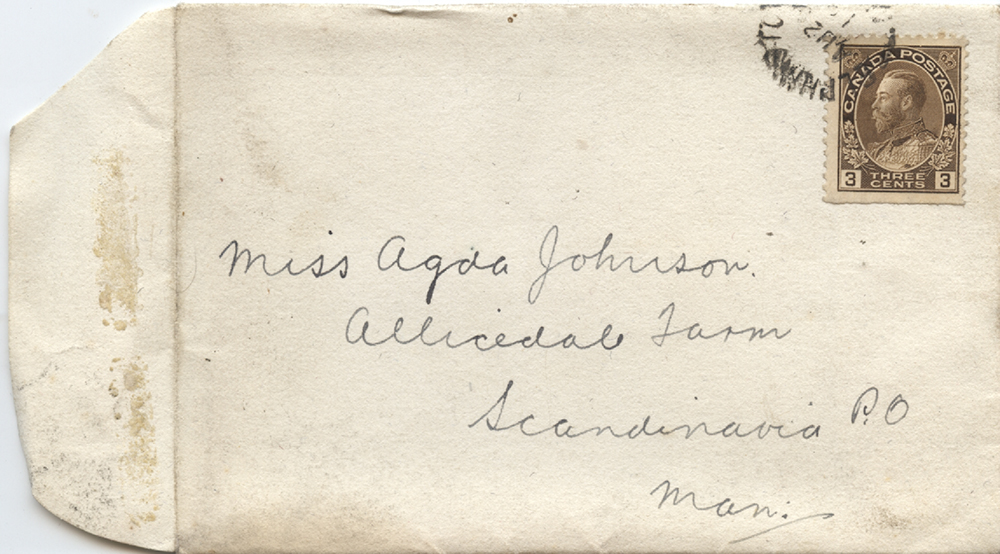 CANADA POSTAGE
3 THREE CENTS 3
Miss Agda Johnson.
Allicedale Farm
Scandinavia P.O
Man.